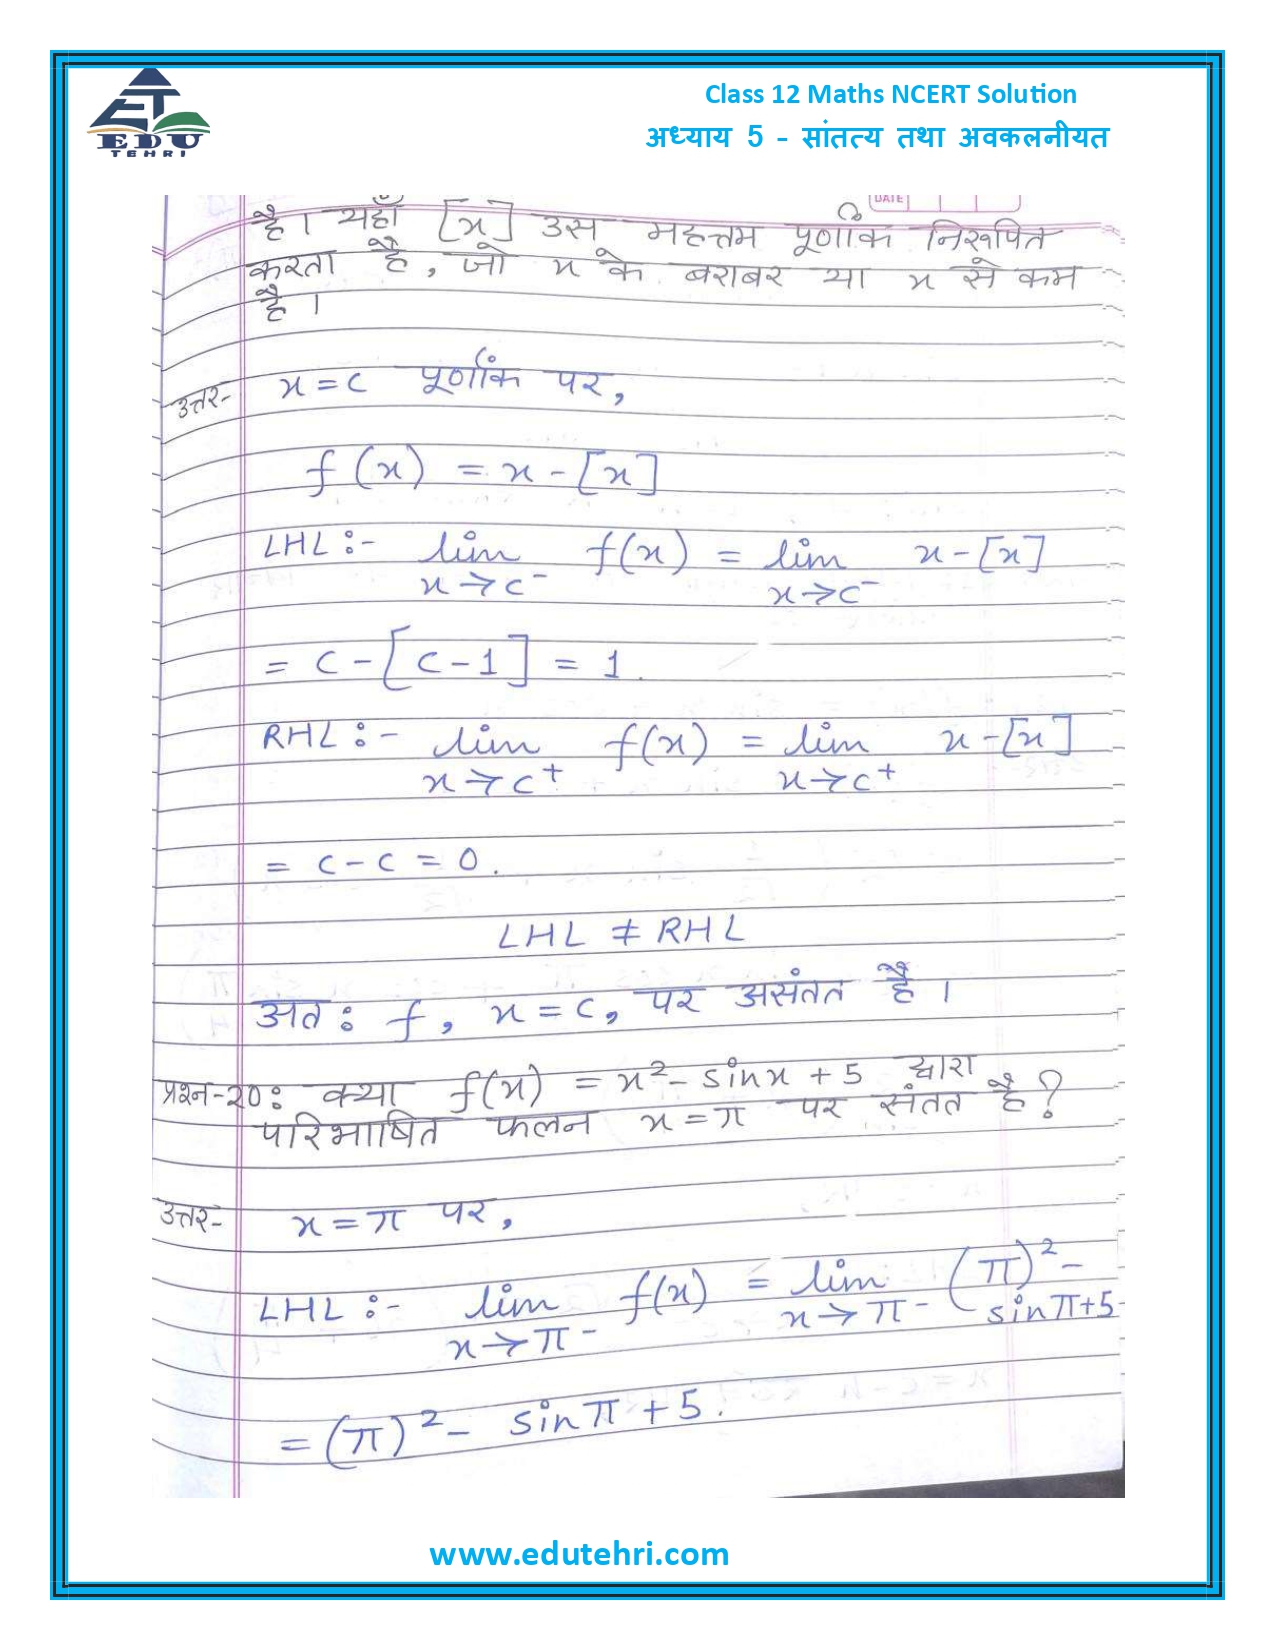 Class 12 Maths NCERT Solution
अध्याय 5 - सांतत्य तथा अवकलनीयत
EDU
TEHRI
DATE
है। यहाँ [x] उस महत्तम पूर्णांक निरूपित
करता है, जो x के बराबर या x से कम
है।
उत्तर- x = c पूर्णांक पर,
f(x) = x - [x]
LHL :- lim f(x) = lim x - [x]
x → c⁻ x → c⁻
= c - [c - 1] = 1.
RHL :- lim f(x) = lim x - [x]
x → c⁺ x → c⁺
= c - c = 0.
LHL ≠ RHL
अतः f, x = c, पर असंतत है।
प्रश्न-20: क्या f(x) = x² - sinx + 5 द्वारा
परिभाषित फलन x = π पर संतत है?
उत्तर- x = π पर,
LHL :- lim f(x) = lim (π)² -
x → π⁻ x → π⁻ sinπ+5
= (π)² - sinπ + 5.
www.edutehri.com